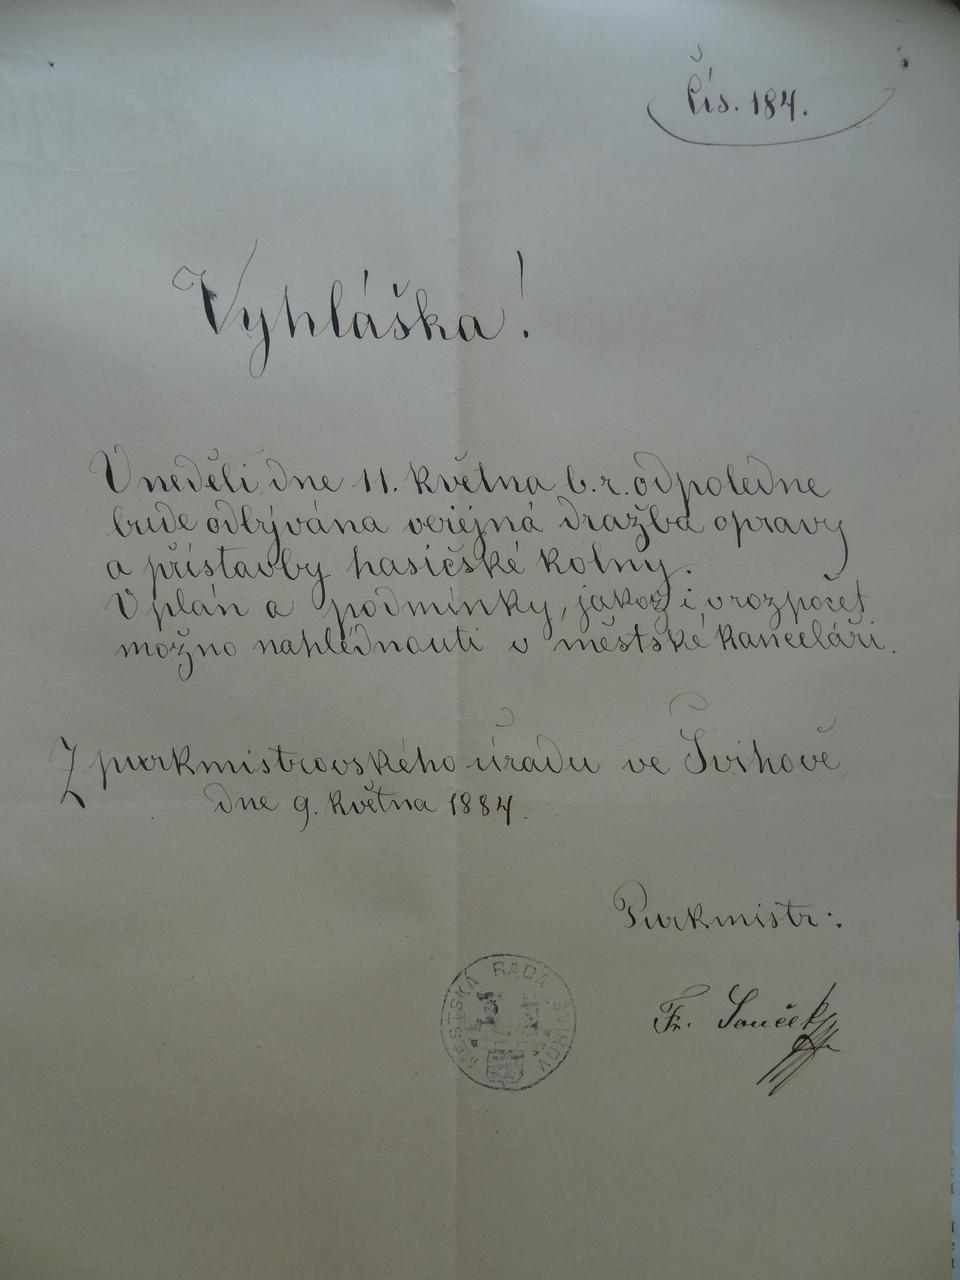 Čís. 184.
Vyhláška!
V neděli dne 11. května b. r. odpoledne
bude odbývána veřejná dražba opravy
a přístavby hasičské kolny.
V plán a podmínky, jakož i v rozpočet
možno nahlédnouti v městské kanceláři.
Z purkmistrovského úřadu ve Švihově
dne 9. května 1884.
Purkmistr:
MĚSTSKÁ RADA ŠVIHOV
Fr. Souček